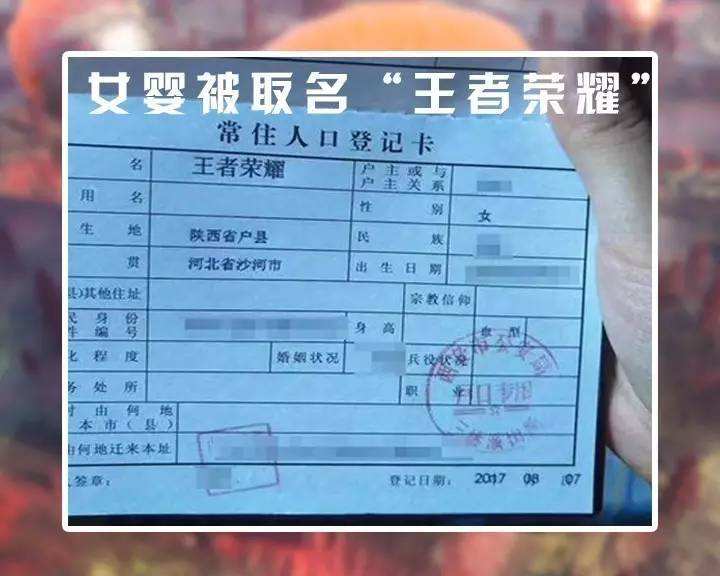 女婴被取名“王者荣耀”
常住人口登记卡
名 王者荣耀 户主或与户主关系
用名 性别 女
生地 陕西省户县 民族
贯 河北省沙河市 出生日期
县)其他住址 宗教信仰
民身份件编号 身高 血型
化程度 婚姻状况 兵役状况
务处所 职业
时由何地本市(县)
由何地迁来本址
人签章: 登记日期: 2017 08 07